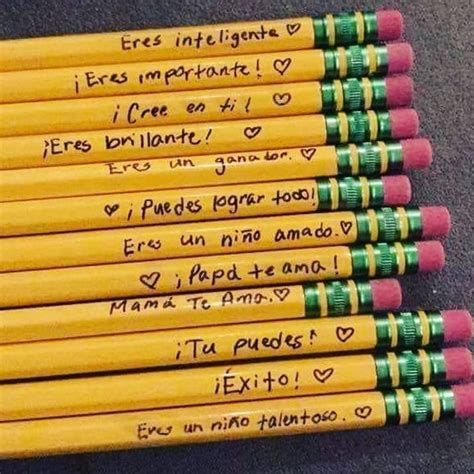 Eres inteligente ♡
¡Eres importante! ♡
¡Cree en ti! ♡
¡Eres brillante! ♡
Eres un ganador. ♡
♥ ¡Puedes lograr todo!
Eres un niño amado. ♡
♡ ¡Papá te ama!
Mamá Te Ama. ♡
¡Tu puedes! ♡
¡Éxito! ♡
Eres un niño talentoso. ♡